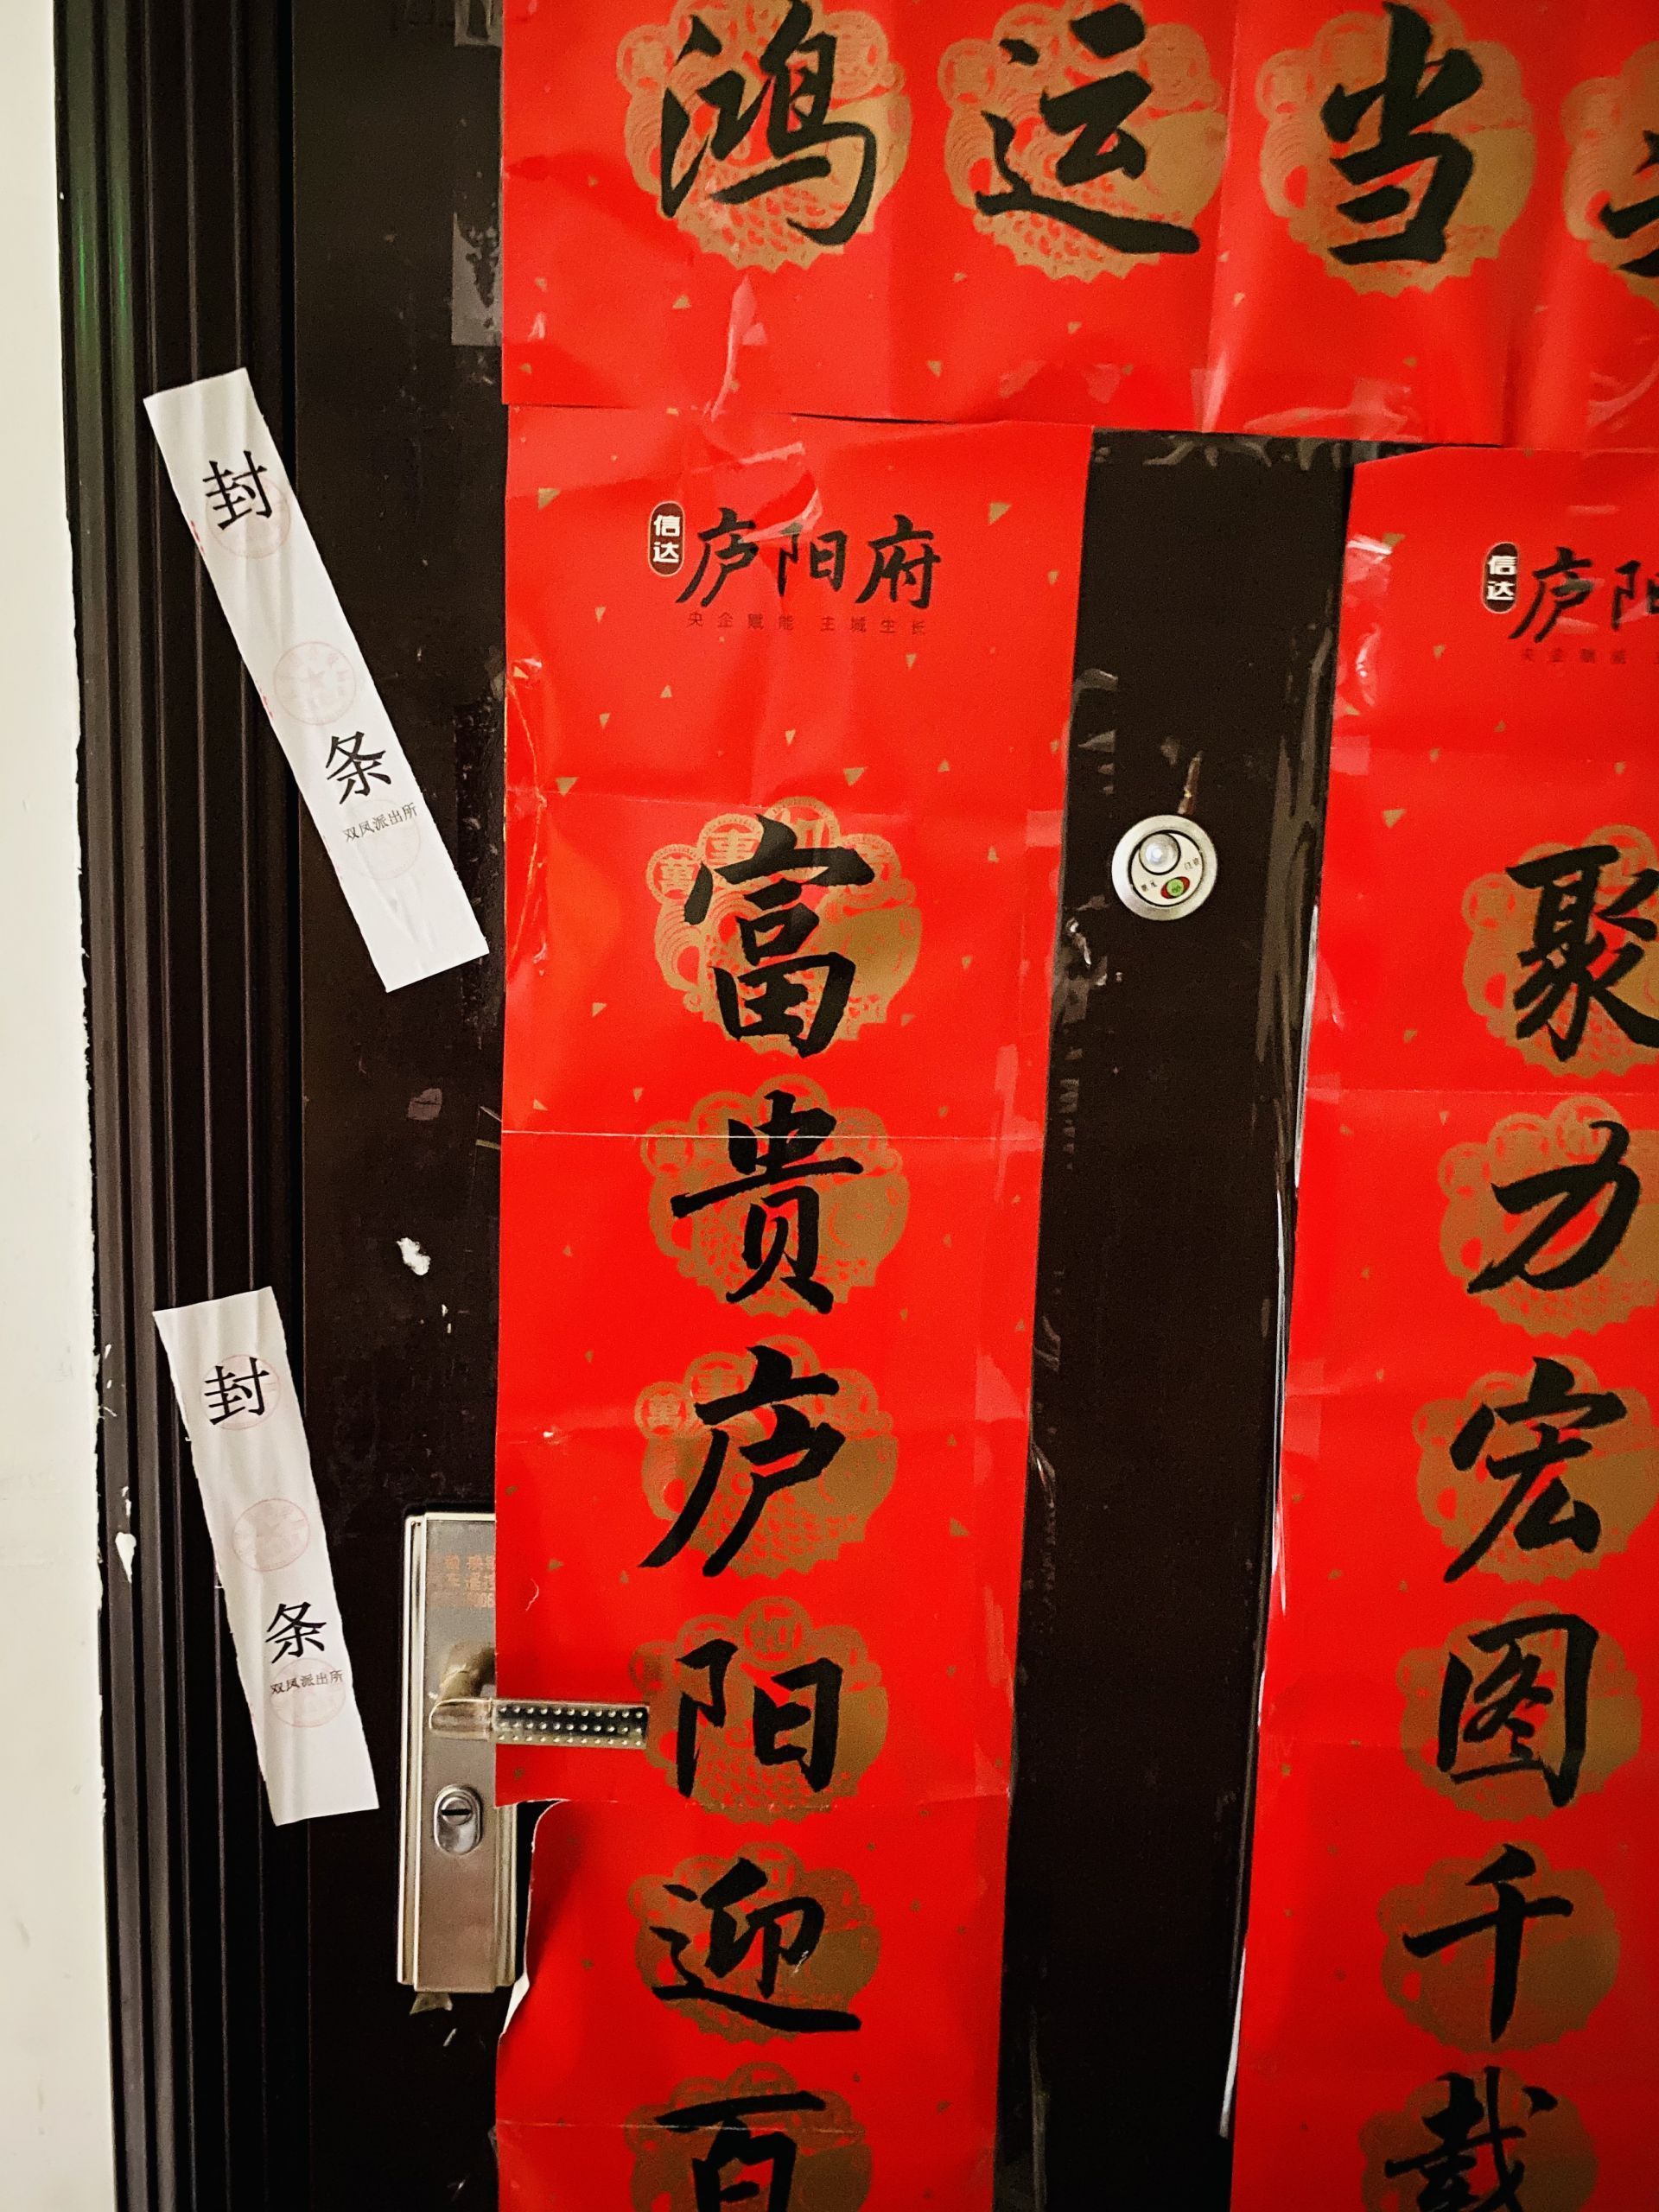 鸿运当
信达
庐阳府
央企赋能 主城生长
富贵庐阳迎百
信达
庐阳
央企赋能
聚力宏图千载
封条
双凤派出所
封条
双凤派出所